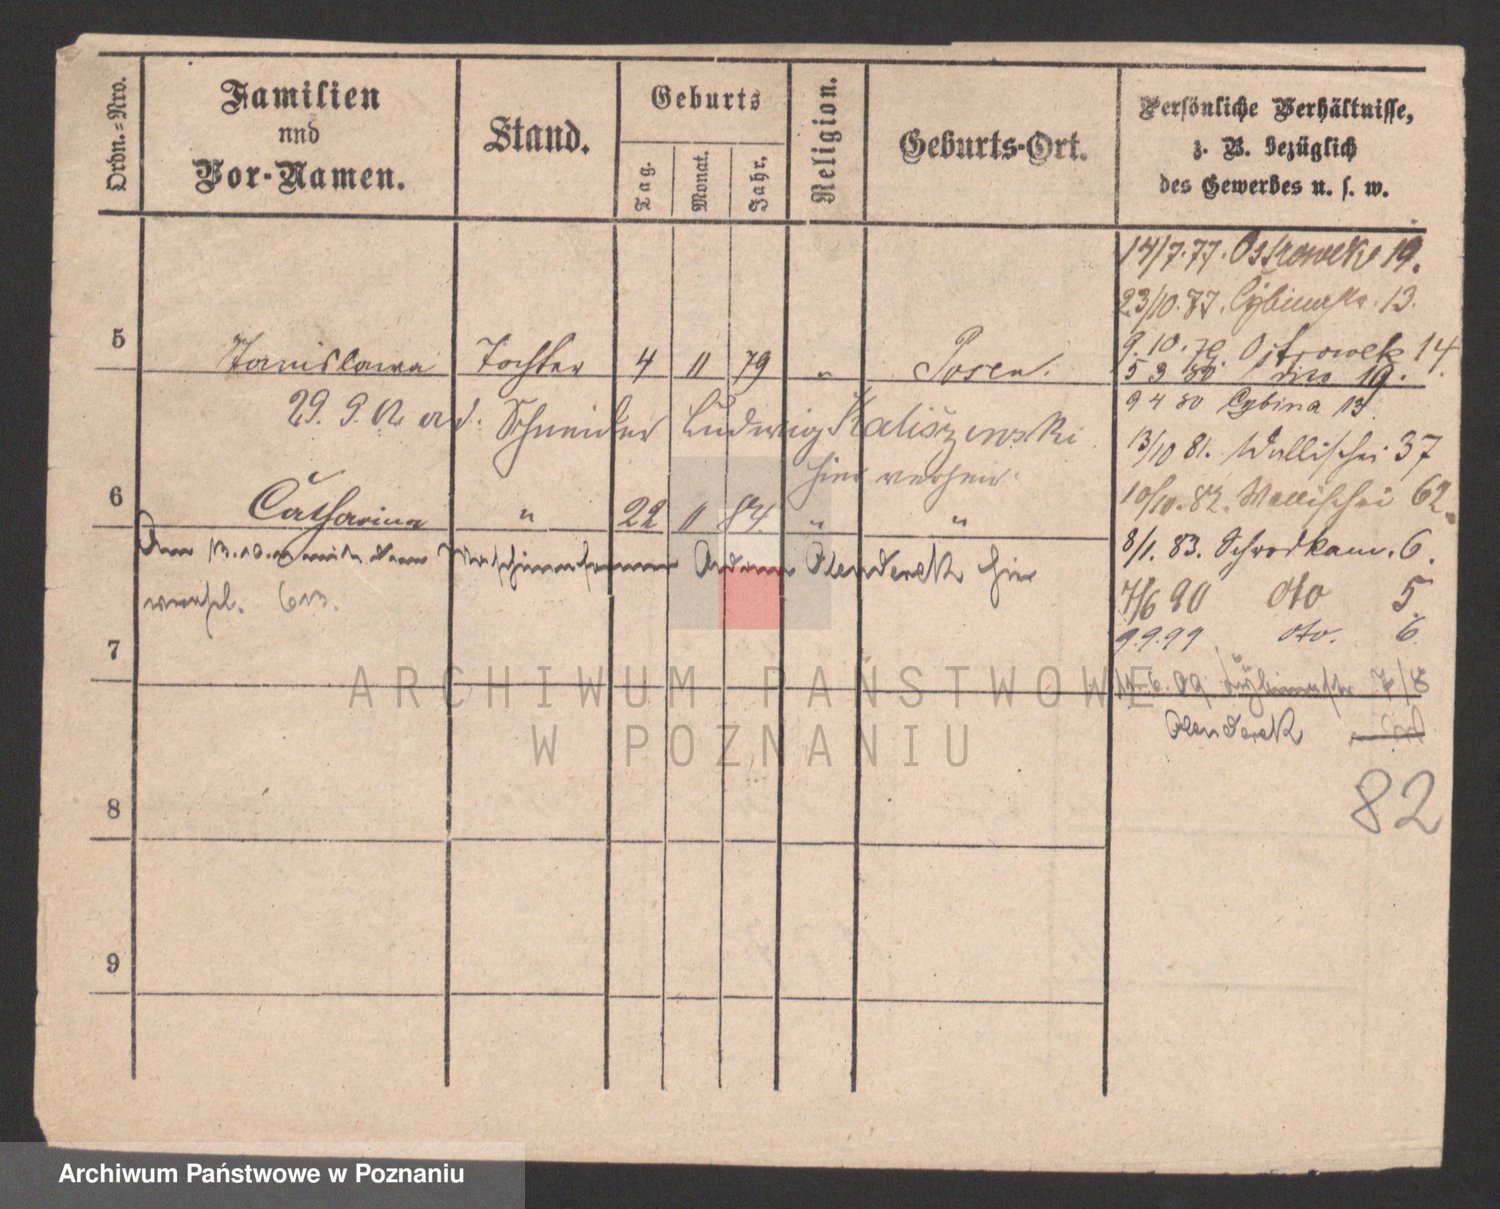 Ordn.-Nro.
Familien
und
Vor-Namen.
Stand.
Geburts
Tag.
Monat.
Jahr.
Religion.
Geburts-Ort.
Persönliche Verhältnisse,
z. B. bezüglich
des Gewerbes u. s. w.
14/7.77. Ostrowek 19.
23/10.77. Cybinastr. 13.
9.10.79. Ostrowek 14.
5 Stanislawa Tochter 4 11 79 " Posen.
5 3 80 dito 19.
9 4 80 Cybina 13
29.9.02 Schneider Ludwig Kaliszewski
13/10 81. Wallischei 37
hier verehen.
10/10.82. Wallischei 62.
6 Catharina " 22 11 84. " "
8/1. 83. Schrodkam. 6.
Am 13.10. mit dem Adam Olenderek hier
7/6 90 dto 5.
verehl.
9.9.99 dto. 6.
7
09 Cybinastr 7/8
Olenderek
8
82
9
ARCHIWUM PAŃSTWOWE
W POZNANIU
Archiwum Państwowe w Poznaniu